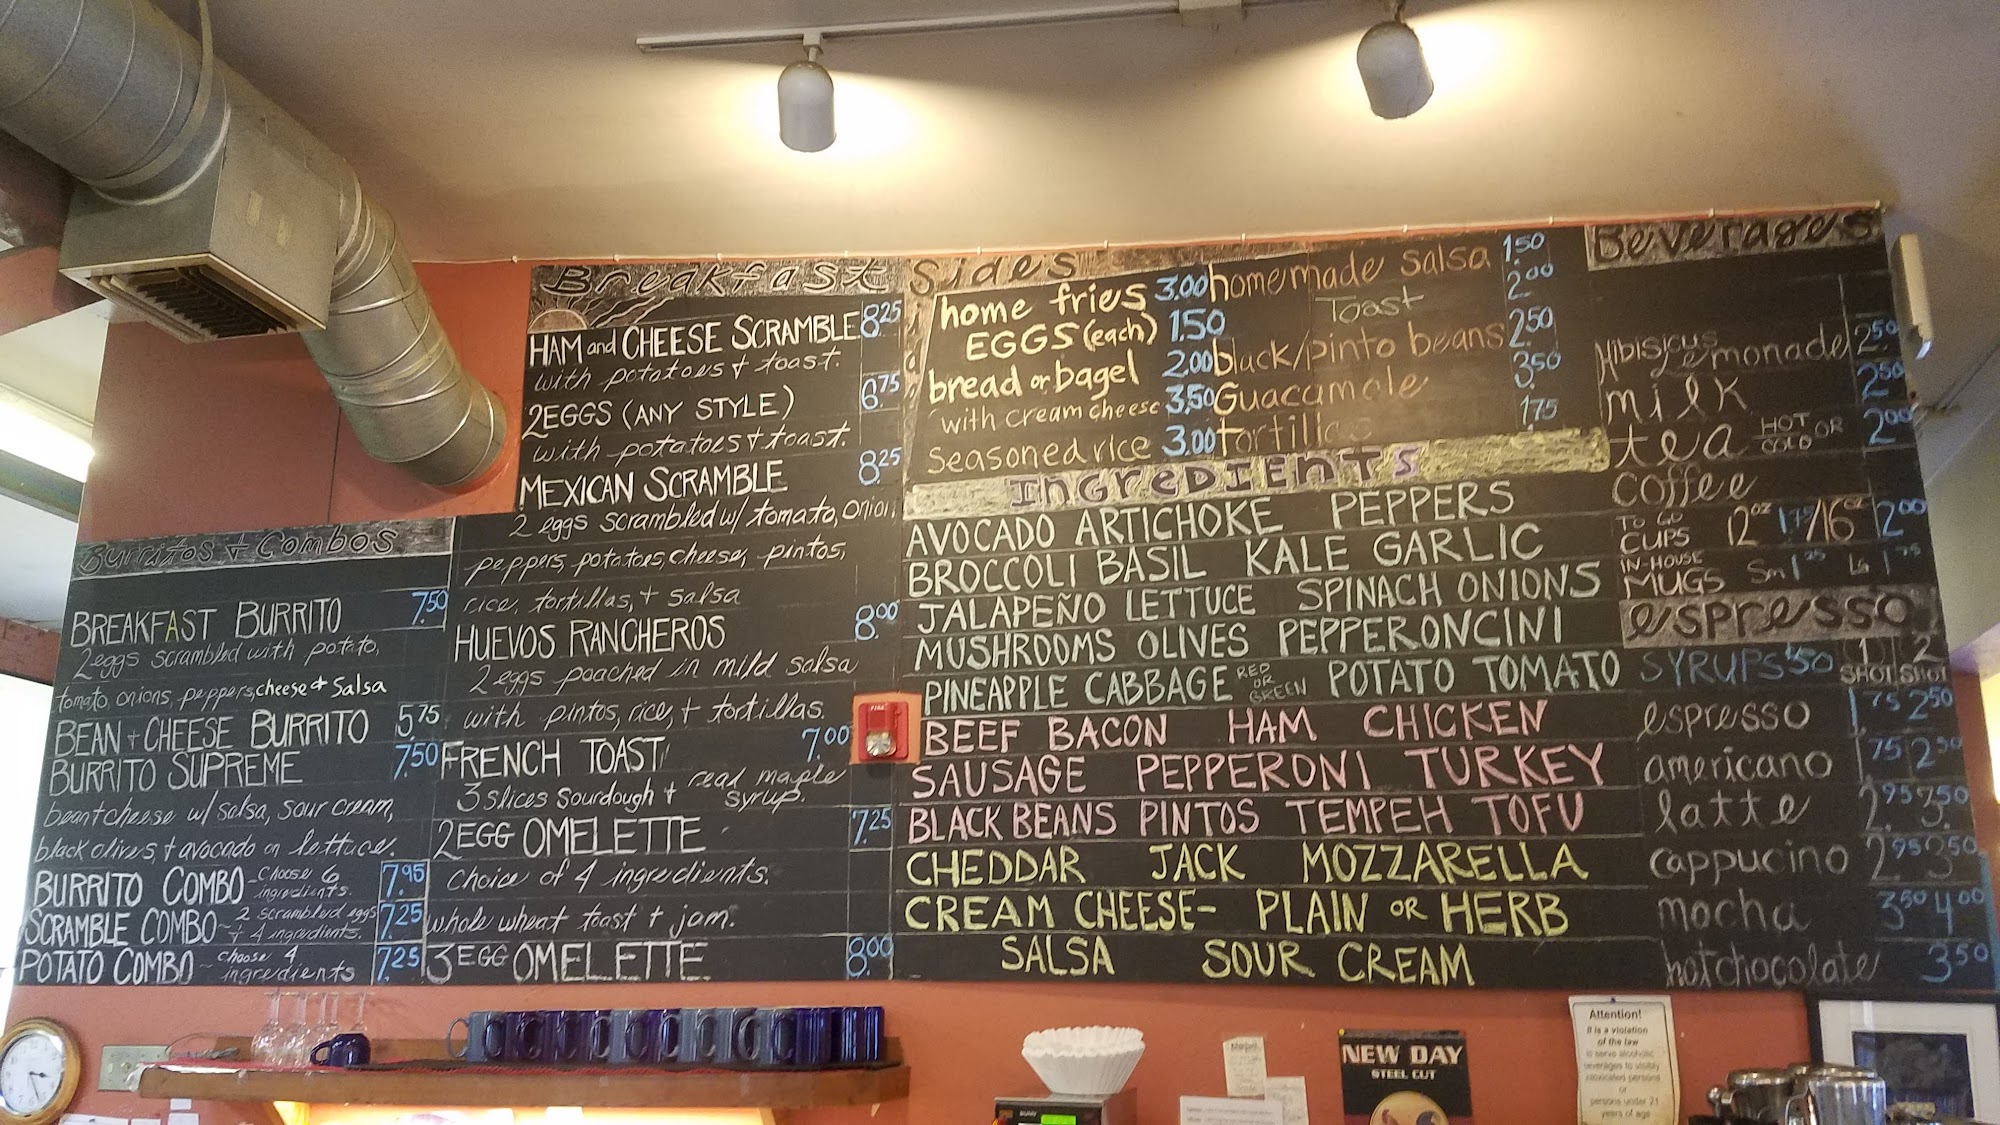 Burritos + Combos
BREAKFAST BURRITO 7.50
2 eggs scrambled with potato,
tomato, onions, peppers, cheese + Salsa
BEAN + CHEESE BURRITO 5.75
BURRITO SUPREME 7.50
bean + cheese w/ salsa, sour cream,
black olives, + avocado on lettuce.
BURRITO COMBO - choose 6 ingredients. 7.95
SCRAMBLE COMBO - 2 scrambled eggs + 4 ingredients. 7.25
POTATO COMBO - choose 4 ingredients 7.25
Breakfast
HAM and CHEESE SCRAMBLE 8.25
with potatoes + toast.
2 EGGS (ANY STYLE) 6.75
with potatoes + toast.
MEXICAN SCRAMBLE 8.25
2 eggs scrambled w/ tomato, onion,
peppers, potatoes, cheese, pintos,
rice, tortillas, + salsa
HUEVOS RANCHEROS 8.00
2 eggs poached in mild salsa
with pintos, rice, + tortillas.
FRENCH TOAST 7.00
3 slices sourdough + real maple syrup.
2 EGG OMELETTE 7.25
choice of 4 ingredients.
whole wheat toast + jam.
3 EGG OMELETTE 8.00
Sides
home fries 3.00
EGGS (each) 1.50
bread or bagel 2.00
with cream cheese 3.50
seasoned rice 3.00
homemade salsa 1.50
Toast 2.00
black/pinto beans 2.50
Guacamole 3.50
tortillas 1.75
Ingredients
AVOCADO ARTICHOKE PEPPERS
BROCCOLI BASIL KALE GARLIC
JALAPEÑO LETTUCE SPINACH ONIONS
MUSHROOMS OLIVES PEPPERONCINI
PINEAPPLE CABBAGE RED OR GREEN POTATO TOMATO
BEEF BACON HAM CHICKEN
SAUSAGE PEPPERONI TURKEY
BLACK BEANS PINTOS TEMPEH TOFU
CHEDDAR JACK MOZZARELLA
CREAM CHEESE- PLAIN OR HERB
SALSA SOUR CREAM
Beverages
Hibiscus Lemonade 2.50
milk 2.50
tea HOT OR COLD 2.00
coffee
TO GO CUPS 12oz 1.75/16oz 2.00
IN-HOUSE MUGS Sm 1.25 LG 1.75
espresso
SYRUPS .50 1 SHOT 2 SHOT
espresso 1.75 2.50
americano 1.75 2.50
latte 2.95 3.50
cappucino 2.95 3.50
mocha 3.50 4.00
hot chocolate 3.50
FIRE
NEW DAY
STEEL CUT
Attention!
It is a violation
of the law
to serve alcoholic
beverages to visibly
intoxicated persons
or
persons under 21
years of age